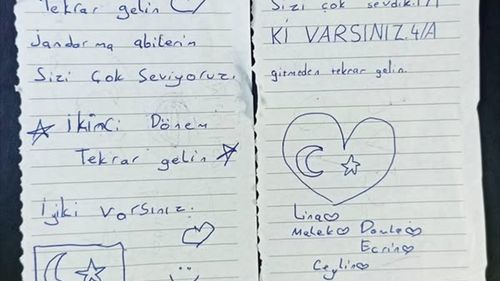 Tekrar gelin
Jandarma abilerim
Sizi Çok Seviyoruz.
İkinci Dönem
Tekrar gelin
İyiki varsınız.
Sizi çok sevdik.
Kİ VARSINIZ.4/A
gitmeden tekrar gelin.
Lina
Melek
Ecrin
Ceylin